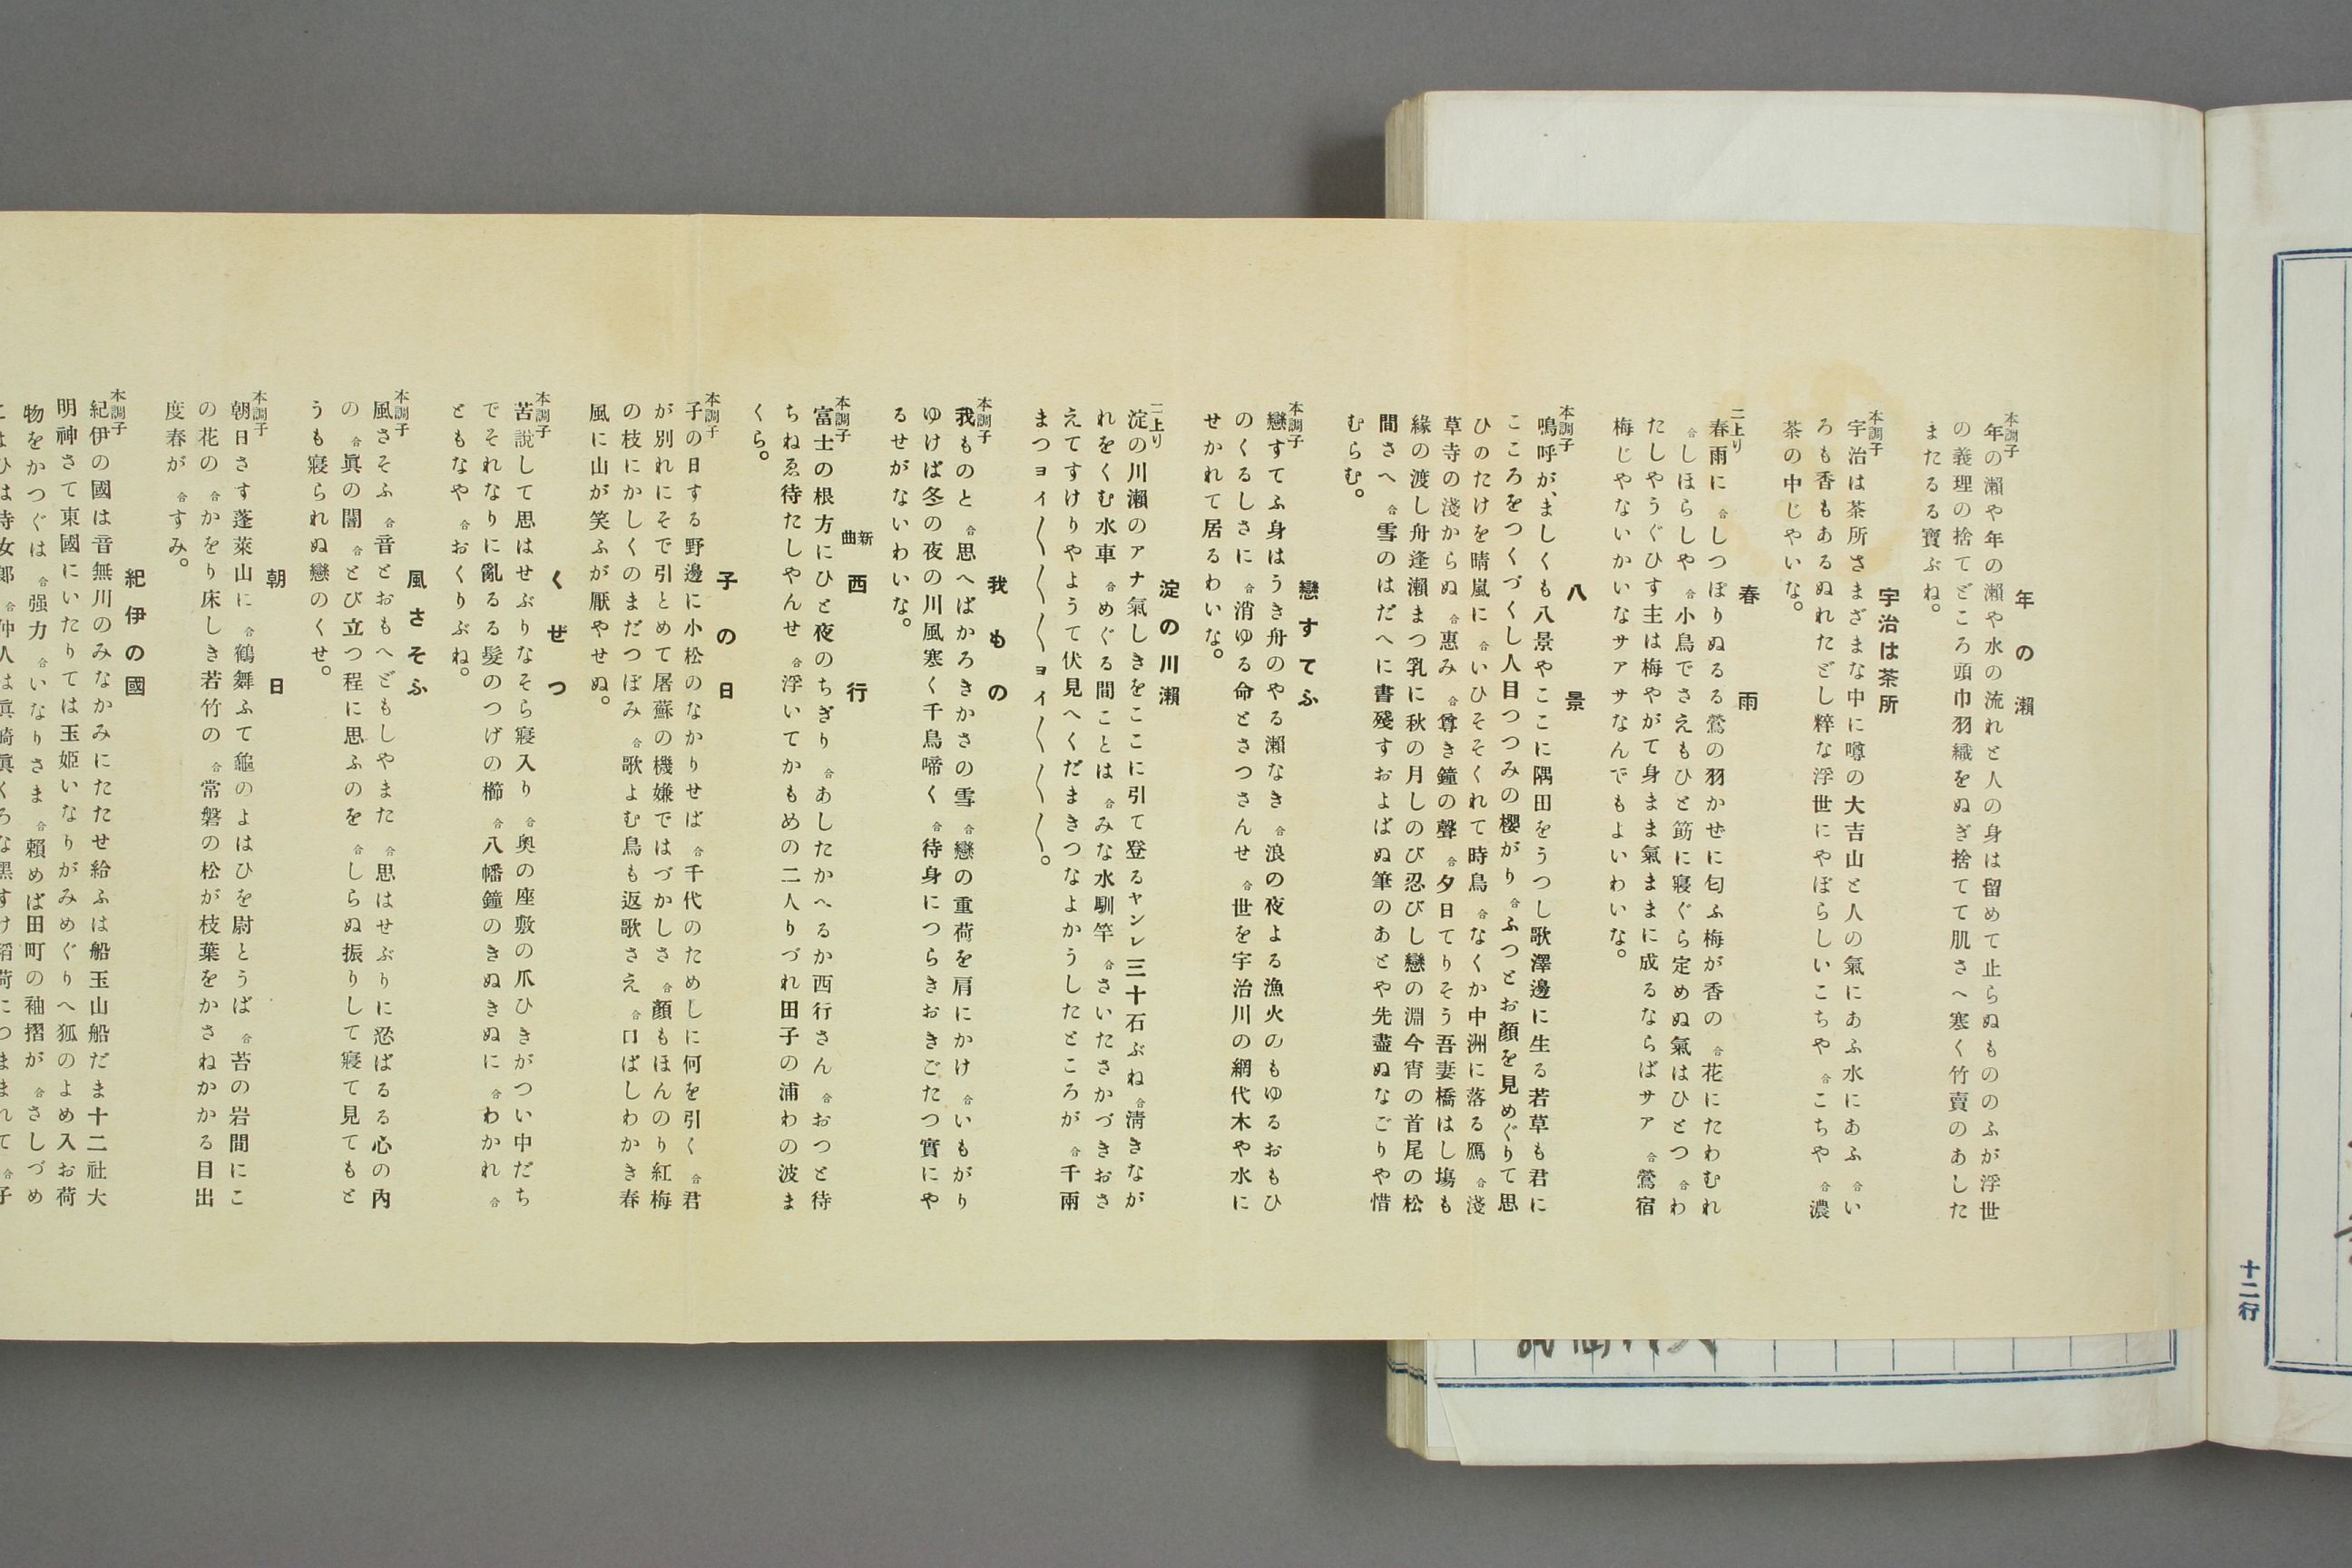 年の瀬
本調子
年の瀬や年の瀬や水の流れと人の身は留めて止らぬもののふが浮世
の義理の捨てどころ頭巾羽織をぬぎ捨てて肌さへ寒く竹賣のあした
またるる寶ぶね。
宇治は茶所
本調子
宇治は茶所さまざまな中に噂の大吉山と人の氣にあふ水にあふ 合い
ろも香もあるぬれたどし粹な浮世にやぼらしいこちや 合こちや 合濃
茶の中じやいな。
春雨
二上り
春雨に 合しつぽりぬるる鶯の羽かぜに匂ふ梅が香の 合花にたわむれ
合しほらしや 合小鳥でさえもひと筋に寢ぐら定めぬ氣はひとつ 合わ
たしやうぐひす主は梅やがて身まま氣ままに成るならばサア 合鶯宿
梅じやないかいなサアサなんでもよいわいな。
八景
本調子
鳴呼が、ましくも八景やここに隅田をうつし歌澤邊に生る若草も君に
こころをつくづくし人目つつみの櫻がり 合ふつとお顔を見めぐりて思
ひのたけを晴嵐に 合いひそそくれて時鳥 合なくか中洲に落る鴈 合淺
草寺の淺からぬ 合惠み 合尊き鐘の聲 合夕日てりそう吾妻橋はし塲も
緣の渡し舟逢瀨まつ乳に秋の月しのび忍びし戀の淵今宵の首尾の松
間さへ 合雪のはだへに書殘すおよばぬ筆のあとや先盡ぬなごりや惜
むらむ。
戀すてふ
本調子
戀すてふ身はうき舟のやる瀨なき 合浪の夜よる漁火のもゆるおもひ
のくるしさに 合消ゆる命とさつさんせ 合世を宇治川の網代木や水に
せかれて居るわいな。
淀の川瀨
二上り
淀の川瀨のアナ氣しきをここに引て登るヤンレ三十石ぶね 合淸きなが
れをくむ水車 合めぐる間ことは 合みな水馴竿 合さいたさかづきおさ
えてすけりやようて伏見へくだまきつなよかうしたところが 合千兩
まつョィ〱〱〱ョィ〱〱〱。
我もの
本調子
我ものと 合思へばかろきかさの雪 合戀の重荷を肩にかけ 合いもがり
ゆけば冬の夜の川風寒く千鳥啼く 合待身につらきおきごたつ實にや
るせがないわいな。
新曲 西行
本調子
富士の根方にひと夜のちぎり 合あしたかへるか西行さん 合おつと待
ちねゑ待たしやんせ 合浮いてかもめの二人りづれ田子の浦わの波ま
くら。
子の日
本調子
子の日する野邊に小松のなかりせば 合千代のためしに何を引く 合君
が別れにそで引とめて屠蘇の機嫌ではづかしさ 合顏もほんのり紅梅
の枝にかしくのまだつぼみ 合歌よむ鳥も返歌さえ 合口ばしわかき春
風に山が笑ふが厭やせぬ。
くぜつ
本調子
苦說して思はせぶりなそら寢入り 合奧の座敷の爪ひきがつい中だち
でそれなりに亂るる髮のつげの櫛 合八幡鐘のきぬきぬに 合わかれ 合
ともなや 合おくりぶね。
風さそふ
本調子
風さそふ 合音とおもへどもしやまた 合思はせぶりに忍ばるる心の內
の 合眞の闇 合とび立つ程に思ふのを 合しらぬ振りして寢て見てもと
うも寢られぬ戀のくせ。
朝日
本調子
朝日さす蓬萊山に 合鶴舞ふて龜のよはひを尉とうば 合苔の岩間にこ
の花の 合かをり床しき若竹の 合常磐の松が枝葉をかさねかかる目出
度春が 合すみ。
紀伊の國
本調子
紀伊の國は音無川のみなかみにたたせ給ふは船玉山船だま十二社大
明神さて東國にいたりては玉姬いなりがみめぐりへ狐のよめ入お荷
物をかつぐは 合强力 合いなりさま 合賴めば田町の袖摺が 合さしづめ
十二行